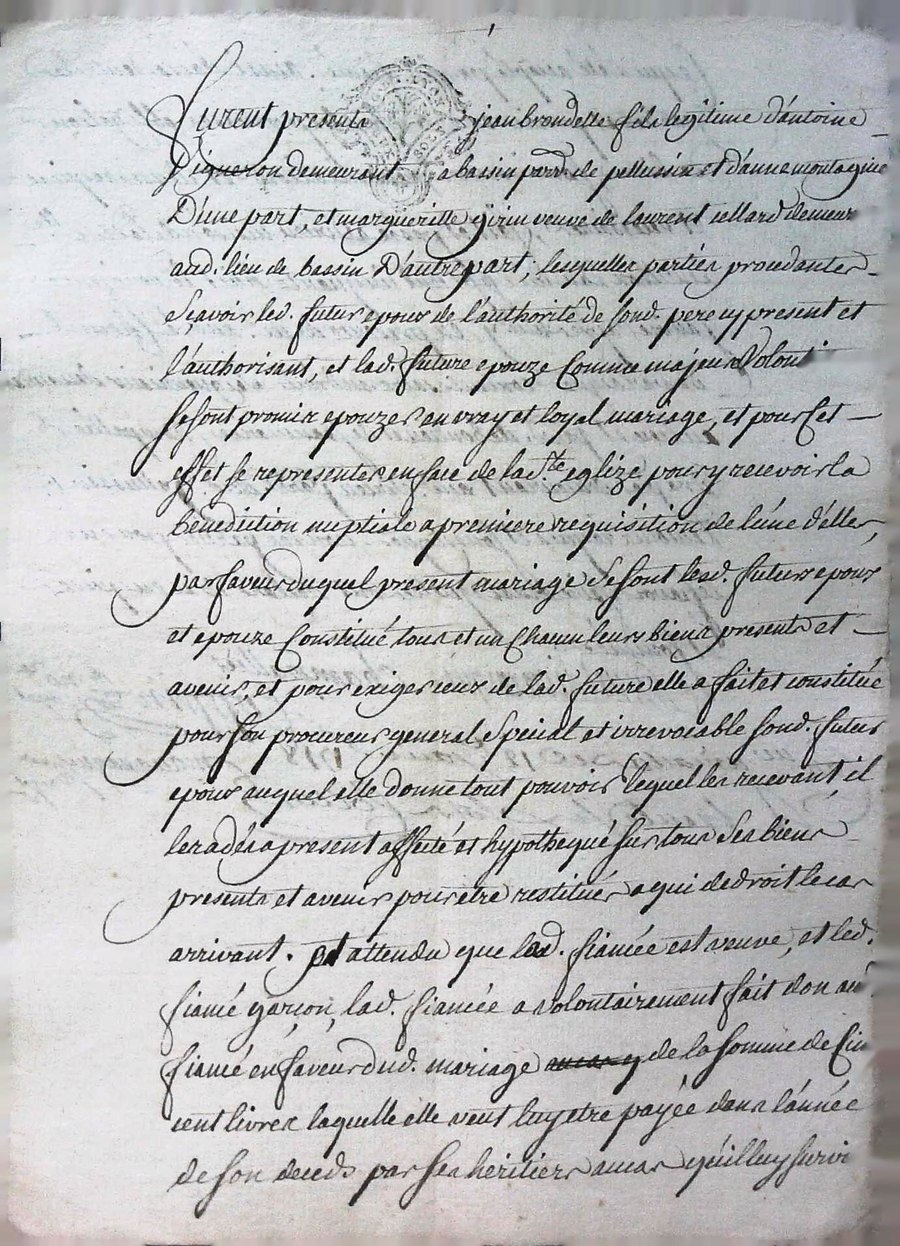 furent presents jean brondelle fils legitime d'antoine
Vigneron demeurant a bassin parr. de pellussin et d'anne montagne
D'une part, et margueritte girin veuve de laurent cellard demeur
aud. lieu de bassin D'autre part; lesquelles parties procedantes
Sçavoir led. futur epoux de l'authorité de sond. pere cy present et
l'authorisant, et lad. future epouze Comme majeure Volont
se sont promis epouzer en vray et loyal mariage, et pour Cet
effet se representer en face de la Ste eglize pour y recevoir la
bénédition nuptiale a premiere requisition de l'une d'elles
par faveur duquel present mariage Se sont lesd. futurs epoux
et epouze Constitué tous et un Chacun leurs biens presents et
avenir, et pour exiger ceux de lad. future elle a fait et constitué
pour son procureur general Special et irrevocable sond. futur
epoux auquel elle donne tout pouvoir lequel les recevant, il
les a dès a present affecté et hypothequé sur tous Ses biens
presents et avenir pour être restitués a qui de droit le cas
arrivant. Et attendu que lad. fiancée est veuve, et led.
fiancé garçon, lad. fiancée a volontairement fait don au
fiancé en faveur dud. mariage de la somme de Cin
cent livres laquelle elle veut luy etre payée dans l'année
de son deceds par Ses heritiers au cas qu'il luy survi